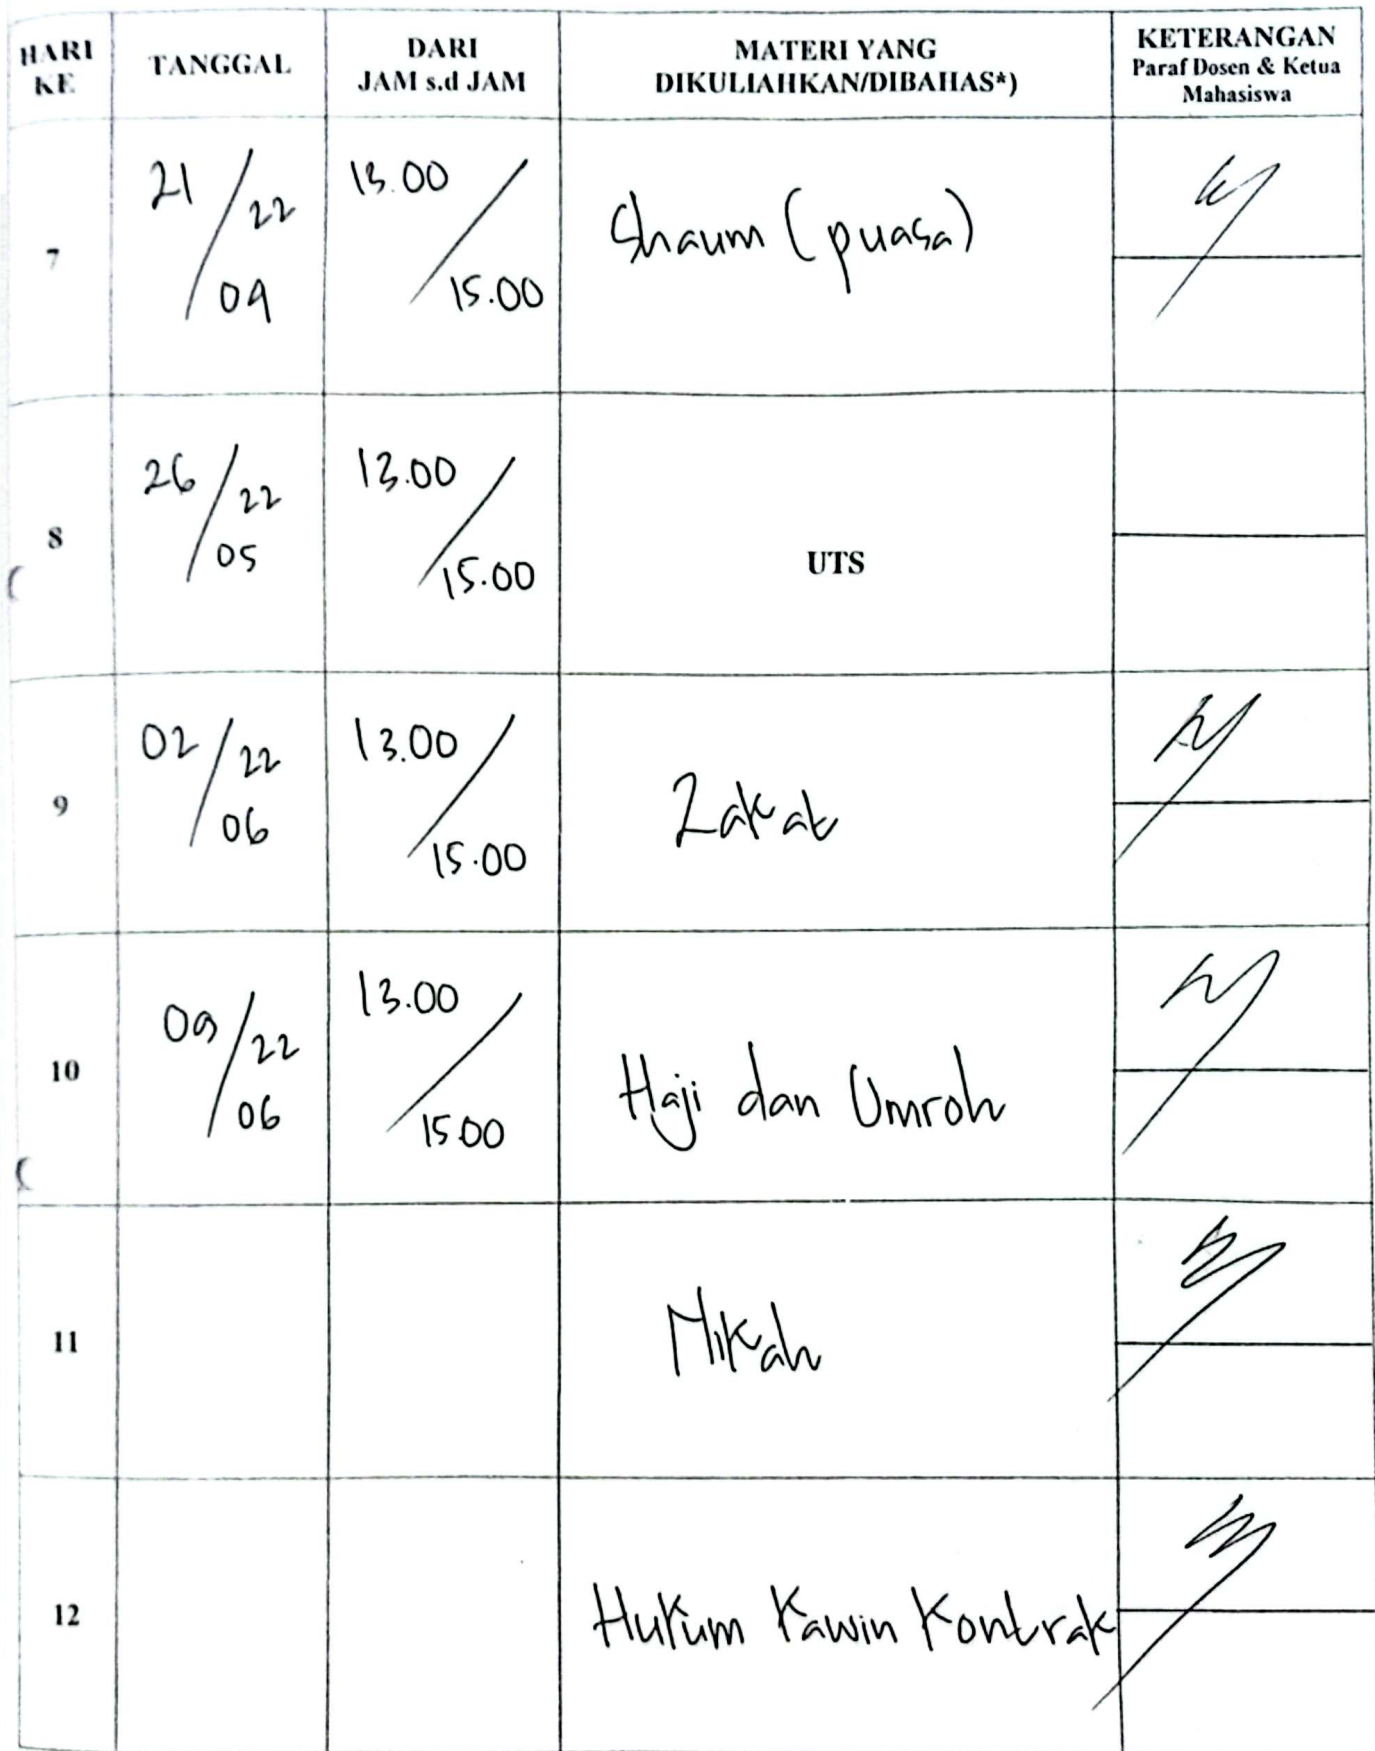 HARI KE TANGGAL DARI JAM s.d JAM MATERI YANG DIKULIAHKAN/DIBAHAS*) KETERANGAN Paraf Dosen & Ketua Mahasiswa
7 21/22 04 13.00/15.00 Shaum (puasa)
8 26/22 05 13.00/15.00 UTS
9 02/22 06 13.00/15.00 Zakat
10 09/22 06 13.00/15.00 Haji dan Umroh
11 Nikah
12 Hukum Kawin Kontrak